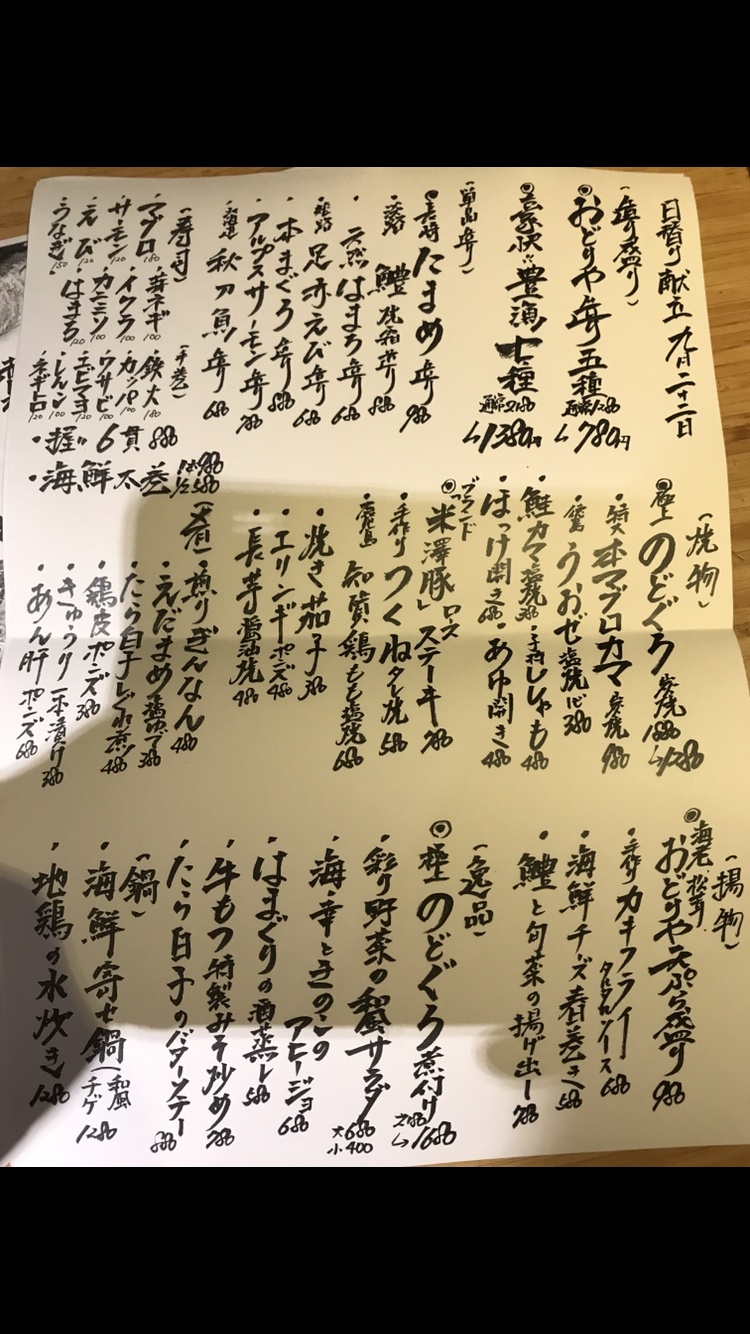 日替り献立 九月二十二日
(弁り盛り)
◎おどりや弁五種 通常1280 ↳780円
◎豪快!! 豊漁七種 通常2180 ↳1380円
(単品弁)
◎長崎 たまめ弁 980
・淡路 鱧 焼霜弁り 880
・天然はまち弁 680
・足赤えび弁 680
・本まぐろ弁 880
・アルプスサーモン弁 780
・北海道 秋刀魚弁 680
(寿司)
・マグロ 180
・サーモン 100
・えび 120
・うなぎ 150
・イクラ 180
・カニミソ 100
・はまち 120
(手巻)
・鉄火 180
・カッパ 100
・ワサビ 100
・エビマヨ 120
・ネギトロ 120
・握り 6貫 880
・海鮮太巻 1本 980 1/2 580
(焼物)
◎極上 のどぐろ 炭焼 1880 ↳1280
・特大 本マグロカマ 炭焼 980
・うおぜ塩焼 380
・鮭カマ塩焼 380
・子持ししゃも 480
・ほっけ開き 680
・あゆ開き 480
◎ブランド「米澤豚」ロースステーキ 780
・手作りつくね タレ焼 580
・鹿児島 知覧鶏もも塩焼 680
・焼き茄子 380
・エリンギポンズ 480
・長芋醤油焼 480
・煎りぎんなん 480
・えだまめ 塩ゆで 380
・たら白子しぐれ煮 480
・鶏皮ポンズ 380
・きゅうり一本漬け 380
・あん肝ポンズ 680
(揚物)
◎海老、松茸 おどりや天ぷら盛り 980
・手作りカキフライ タルタルソース 680
・海鮮チーズ春巻き 580
・鱧と旬菜の揚げ出し 780
(逸品)
◎極上 のどぐろ煮付け 2180 ↳1680
・彩り野菜の和風サラダ 大680 小400
・海の幸ときのこのアヒージョ 680
・はまぐりの酒蒸し 580
・牛もつ特製みそ炒め 780
・たら白子のバターソテー 880
(鍋)
・海鮮寄せ鍋(和風 チゲ 1280
・地鶏の水炊き 1280